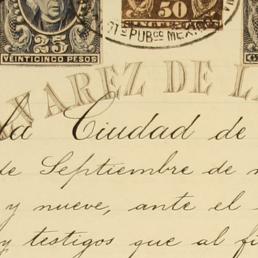 25 50
VEINTICINCO PESOS
PUB.CO MEXICO
VAREZ DE L
la Ciudad de
de Septiembre de
y nueve, ante el
y testigos que al fi